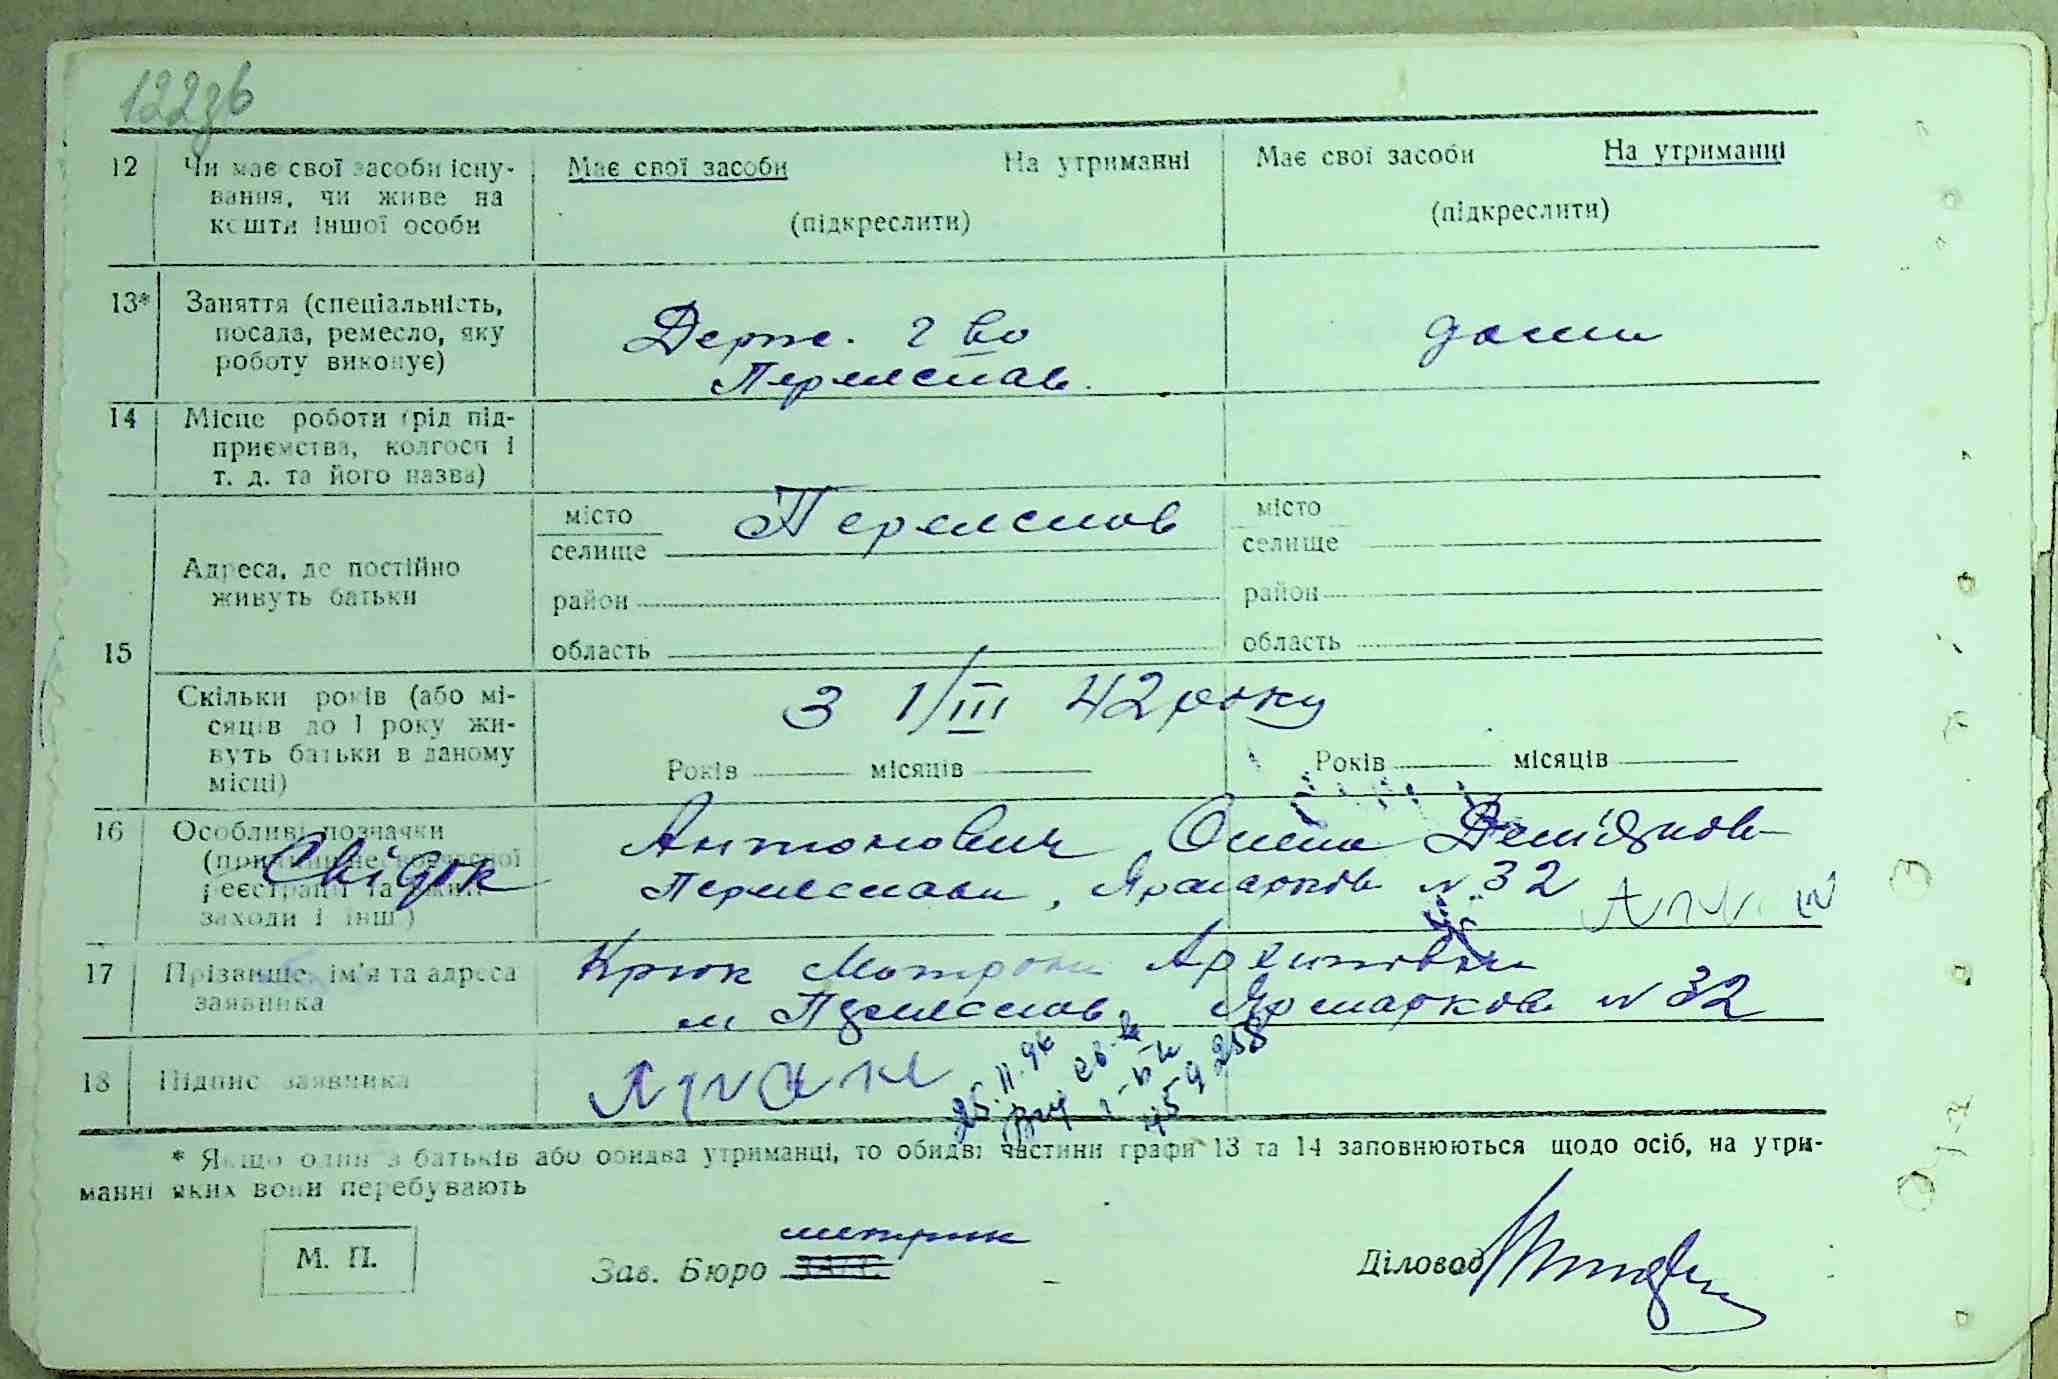 122зв
12 Чи має свої засоби існу- Має свої засоби На утриманні Має свої засоби На утриманці
вання, чи живе на
кошти іншої особи (підкреслити) (підкреслити)
13* Заняття (спеціальність,
посада, ремесло, яку Держ. г во дома
роботу виконує) Переяслав.
14 Місце роботи (рід під-
приємства, колгосп і
т. д. та його назва)
місто Переяслав місто
селище селище
Адреса, де постійно
живуть батьки район район
область область
15
Скільки років (або мі- З 1/III 42 року
сяців до 1 року жи-
вуть батьки в даному
місці) Років місяців Років місяців
16 Особливі позначки Антонович Олена Демідков-
(причини несвоєчасної
Свідок Переяслав, Ярмарков N 32
реєстрації та
заходи і інш.)
17 Прізвище, ім'я та адреса Крюк Мотрона Архипівна
заявника м Переяслав, Ярмарков N 32
18 Підпис заявника
25.II.9
* Якщо один з батьків або обидва утриманці, то обидві частини графи 13 та 14 заповнюються щодо осіб, на утри-
манні яких вони перебувають
метрик
М. П. Зав. Бюро ЗАГС Діловод